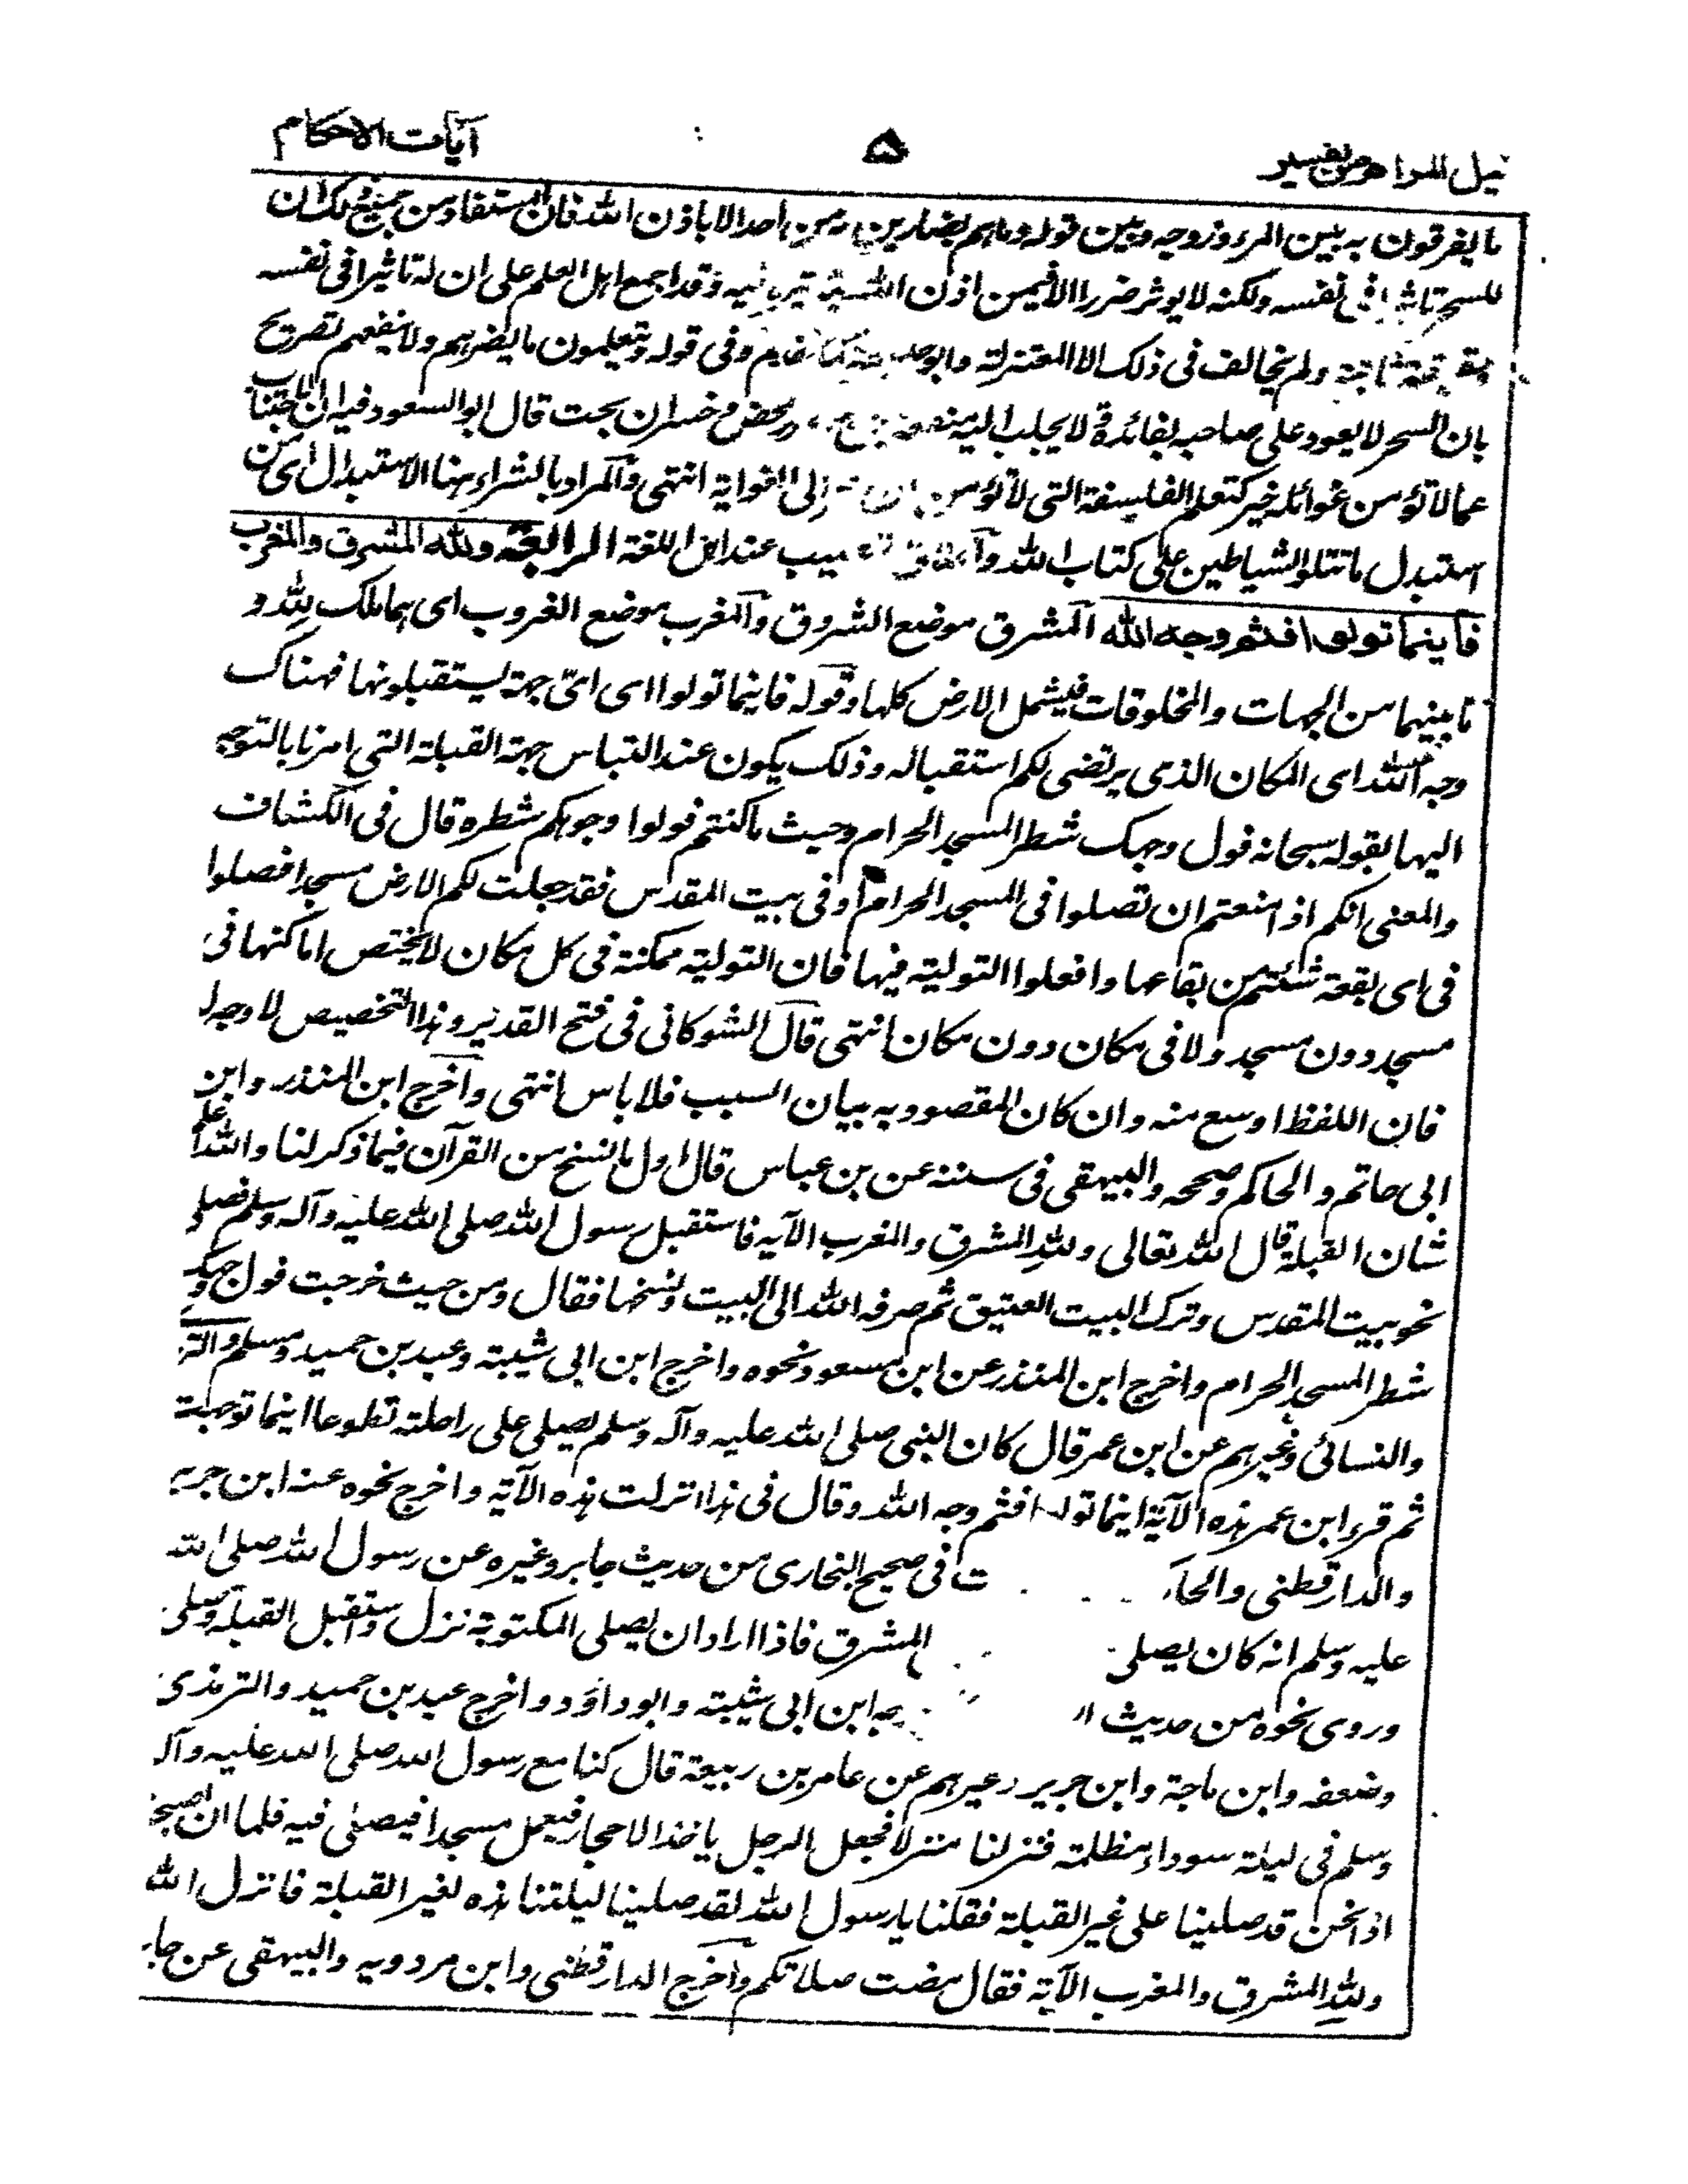 نيل المرام من تفسير
۵
آيات الاحكام
ما يفرقون به بين المرء وزوجه وبين قوله وما هم بضارين به من احد الا باذن الله فان المستفاد من جميع ذلك ان
للسحر تاثيرا فى نفسه ولكنه لا يوثر ضررا الا فيمن اذن الله بتاثيره فيه وقد اجمع اهل العلم على ان له تاثيرا فى نفسه
وحقيقة ثابتة ولم يخالف فى ذلك الا المعتزلة وابو حنيفة كما تقدم وفى قوله ويتعلمون ما يضرهم ولا ينفعهم تصريح
بان السحر لا يعود على صاحبه بفائدة لا يجلب اليه منفعة بل هو ضرر محض وخسران بحت قال ابو السعود فيه ان الاجتناب
عما لا تؤمن غوائله خير كتعلم الفلسفة التى لا تؤمن ان تجر الى الغواية انتهى والمراد بالشراء هنا الاستبدال اى من
استبدل ما تتلو الشياطين على كتاب الله والخلاق النصيب عند اهل اللغة الرابعة ولله المشرق والمغرب
فاينما تولوا فثم وجه الله المشرق موضع الشروق والمغرب موضع الغروب اى هما ملك لله و
ما بينهما من الجهات والمخلوقات فيشمل الارض كلها وقوله فاينما تولوا اى اىّ جهة يستقبلونها فهناك
وجه الله اى المكان الذى يرتضى لكم استقباله وذلك يكون عند التباس جهة القبلة التى امرنا بالتوجه
اليها بقوله سبحانه فول وجهك شطر المسجد الحرام وحيث ما كنتم فولوا وجوهكم شطره قال فى الكشاف
والمعنى انكم اذا منعتم ان تصلوا فى المسجد الحرام او فى بيت المقدس فقد جعلت لكم الارض مسجدا فصلوا
فى اى بقعة شئتم من بقاعها وافعلوا التولية فيها فان التولية ممكنة فى كل مكان لا يختص اماكنها فى
مسجد دون مسجد ولا فى مكان دون مكان انتهى قال الشوكانى فى فتح القدير وهذا التخصيص لا وجه له
فان اللفظ اوسع منه وان كان المقصود به بيان السبب فلا باس انتهى واخرج ابن المنذر وابن
ابى حاتم والحاكم وصححه والبيهقى فى سننه عن بن عباس قال اول ما نسخ من القرآن فيما ذكر لنا والله اعلم
شان القبلة قال الله تعالى ولله المشرق والمغرب الآية فاستقبل رسول الله صلى الله عليه وآله وسلم فصلى
نحو بيت المقدس وترك البيت العتيق ثم صرفه الله الى البيت ونسخها فقال ومن حيث خرجت فول وجهك
شطر المسجد الحرام واخرج ابن المنذر عن ابن مسعود نحوه واخرج ابن ابى شيبة وعبد بن حميد ومسلم والتر
والنسائى وغيرهم عن ابن عمر قال كان النبى صلى الله عليه وآله وسلم يصلى على راحلته تطوعا اينما توجهت
ثم قرء ابن عمر هذه الآية اينما تولوا فثم وجه الله وقال فى هذا انزلت هذه الآية واخرج نحوه عنه ابن جرير
والدارقطنى والحا ت فى صحيح البخارى من حديث جابر وغيره عن رسول الله صلى الله
عليه وسلم انه كان يصلى المشرق فاذا اراد ان يصلى المكتوبة نزل واستقبل القبلة وصلى
وروى نحوه من حديث ابن ابى شيبة وابو داؤد واخرج عبد بن حميد والترمذى
وضعفه وابن ماجة وابن جرير وغيرهم عن عامر بن ربيعة قال كنا مع رسول الله صلى الله عليه وآله
وسلم فى ليلة سوداء مظلمة فنزلنا منزلا فجعل الرجل ياخذ الاحجار فيعمل مسجدا فيصلى فيه فلما ان اصبحنا
اذا نحن قد صلينا على غير القبلة فقلنا يا رسول الله لقد صلينا ليلتنا هذه لغير القبلة فانزل الله
ولله المشرق والمغرب الآية فقال مضت صلاتكم واخرج الدارقطنى وابن مردويه والبيهقى عن جابر